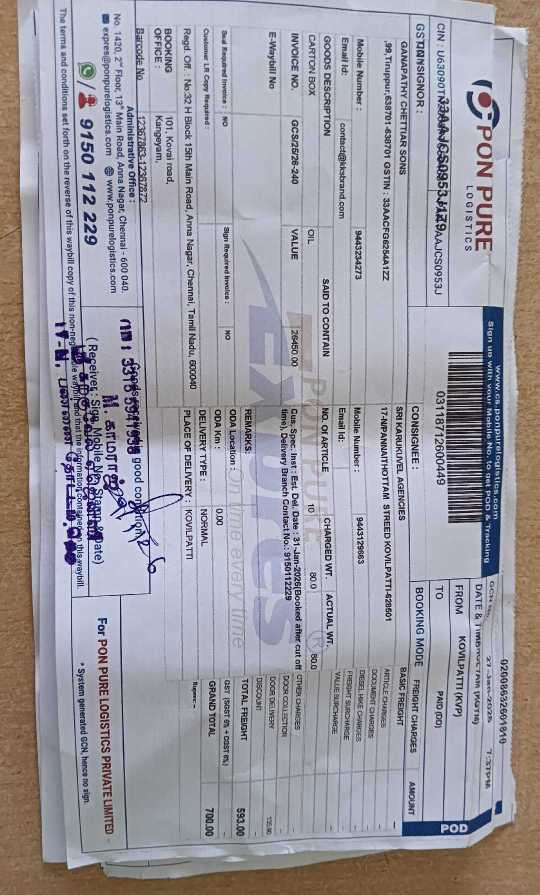 PON PURE
LOGISTICS
www.cs.ponpurelogistics.com
Sign up with your Mobile No. to get POD & Tracking
03118712600449
02008632601810
POD
GCN No.
27-Jan-2026 7:37PM
FROM KOVILPATTI (KVP)
TO
BOOKING MODE PAID (DD)
CONSIGNOR :
GANAPATHY CHETTIAR SONS
,99,Tiruppur,638701-638701 GSTIN : 33AACFG6254A1ZZ
Mobile Number : 9443234273
Email Id: contact@kksbrand.com
CONSIGNEE :
SRI KARUKUVEL AGENCIES
17-NIPANNAITHOTTAM STREED KOVILPATTI-628501
Mobile Number : 9443129663
Email Id:
GOODS DESCRIPTION SAID TO CONTAIN NO. Of ARTICLE CHARGED WT. ACTUAL WT.
CARTON BOX OIL 10 80.0 80.0
INVOICE NO. GCS/25/26-240 VALUE 26450.00
Cus. Spec. Inst : Est. Del. Date : 31-Jan-2026(Booked after cut off
time), Delivery Branch Contact No.: 9150112229
E-Waybill No
REMARKS:
Seal Required Invoice : NO Sign Required Invoice : NO
ODA Location :
Customer LR Copy Required :
ODA Km : 0.00
Regd. Off. : No:32 H Block 15th Main Road, Anna Nagar, Chennai, Tamil Nadu, 600040
DELIVERY TYPE : NORMAL
BOOKING OFFICE : 101, Kovai road, Kangeyam,
PLACE OF DELIVERY : KOVILPATTI
FREIGHT CHARGES AMOUNT
BASIC FREIGHT
ARTICLE CHARGES
DOCUMENT CHARGES
DIESEL HIKE CHARGES
FREIGHT SURCHARGE
VALUE SURCHARGE
OTHER CHARGES
DOOR COLLECTION
DOOR DELIVERY
DISCOUNT
TOTAL FREIGHT 593.00
GRAND TOTAL 700.00
Rupees :-
Barcode No 12367863-12367872
Administrative Office :
No. 1420, 2nd Floor, 13th Main Road, Anna Nagar, Chennai - 600 040.
expres@ponpurelogistics.com www.ponpurelogistics.com
9150 112 229
For PON PURE LOGISTICS PRIVATE LIMITED
* System generated GCN, hence no sign.
The terms and conditions set forth on the reverse of this waybill copy of this non-negotiable waybill and that the information contained on this waybill.